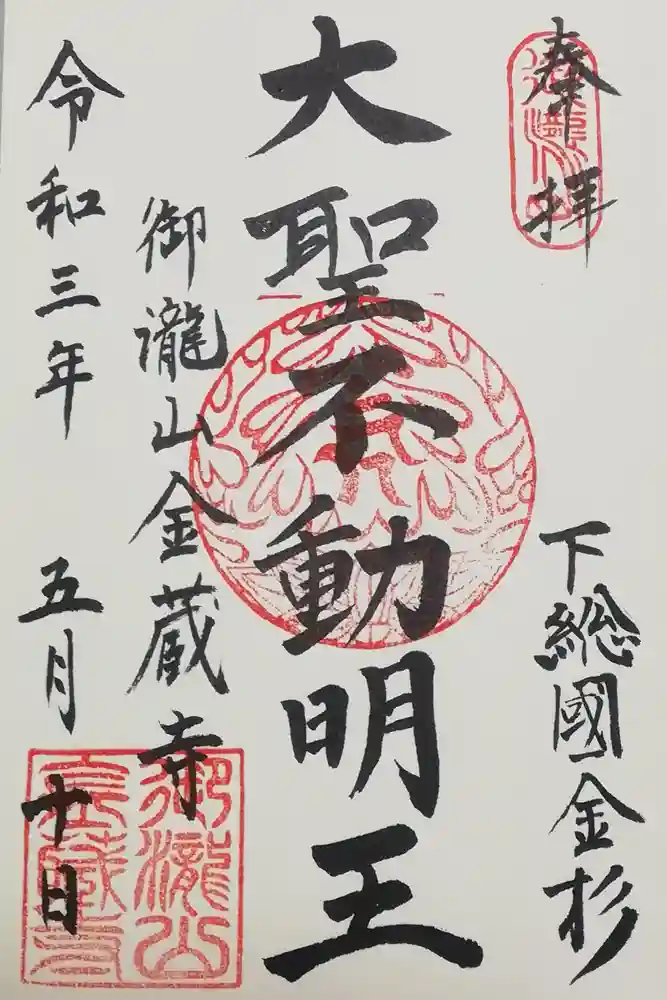 奉拝
下総國金杉
大聖不動明王
御瀧山金蔵寺
令和三年 五月十日
御瀧山
金蔵寺